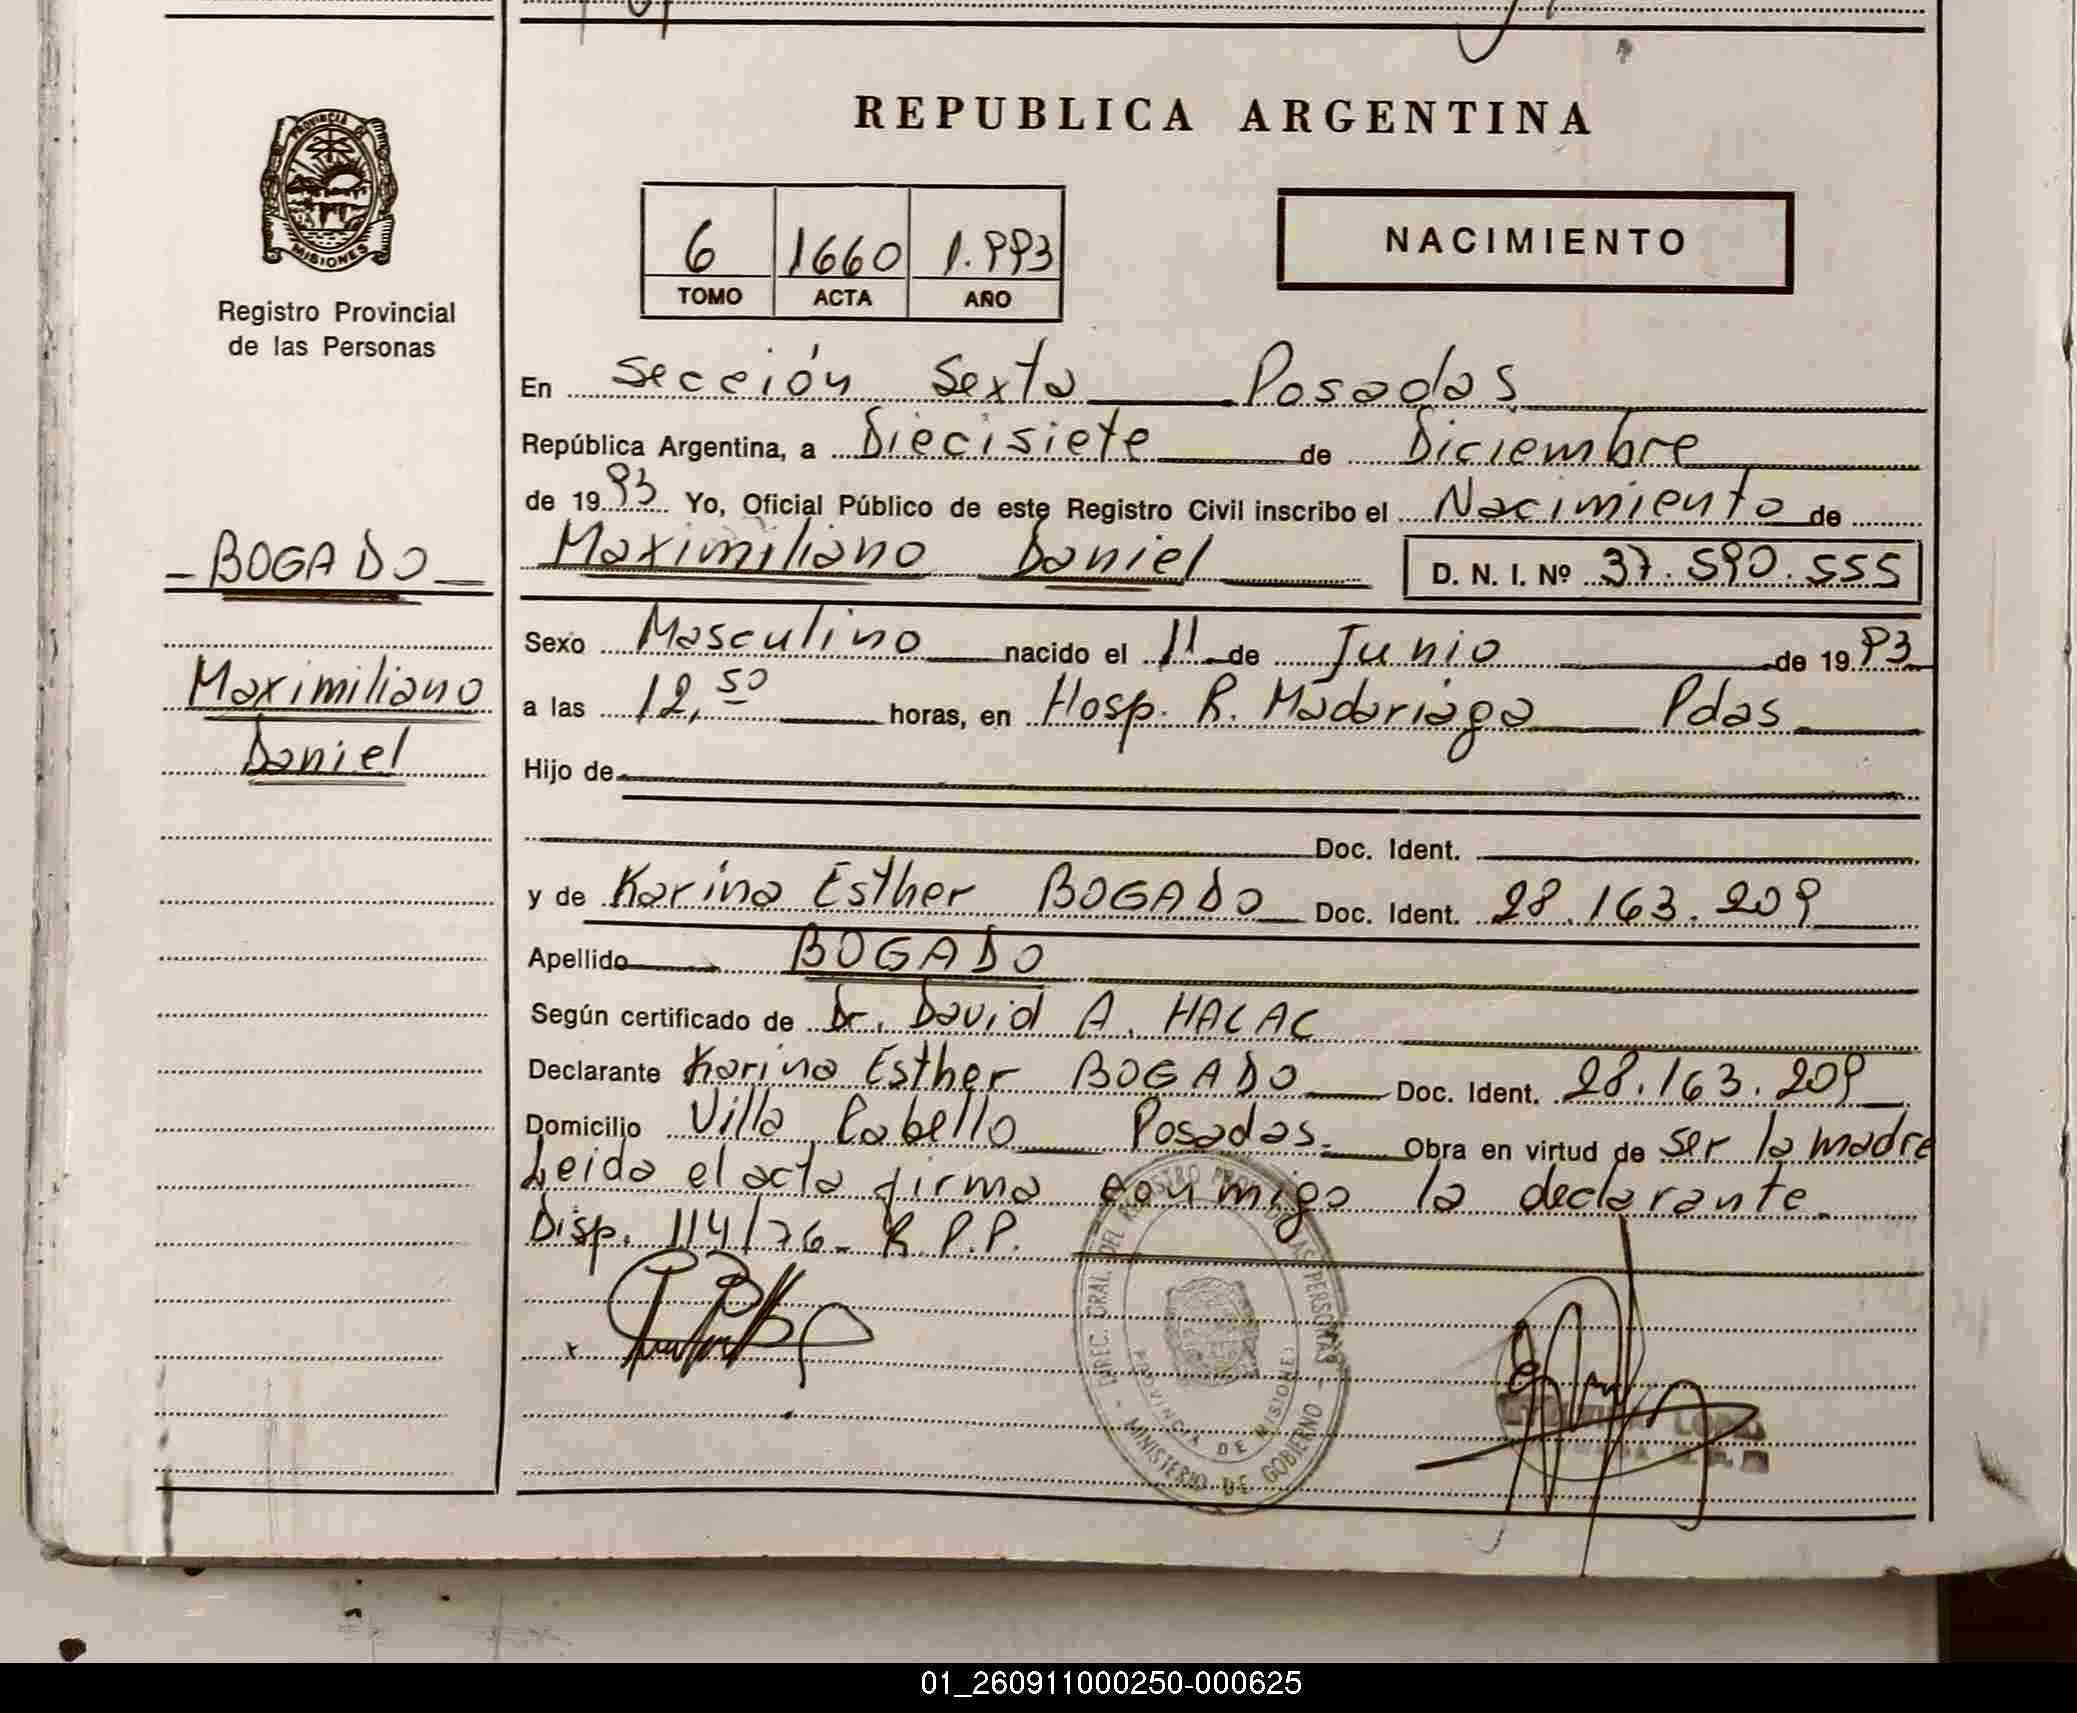 REPUBLICA ARGENTINA
PROVINCIA DE
MISIONES
Registro Provincial
de las Personas
6 1660 1.993
TOMO ACTA AÑO
NACIMIENTO
En Sección Sexta Posadas
República Argentina, a Diecisiete de Diciembre
de 1993 Yo, Oficial Público de este Registro Civil inscribo el Nacimiento de
BOGADO
Maximiliano Daniel D. N. I. Nº 37.590.555
Sexo Masculino nacido el 11 de Junio de 1993
Maximiliano
Daniel
a las 12,50 horas, en Hosp. R. Madariaga Pdas
Hijo de
Doc. Ident.
y de Karina Esther BOGADO Doc. Ident. 28.163.209
Apellido BOGADO
Según certificado de Dr. David A. HALAC
Declarante Karina Esther BOGADO Doc. Ident. 28.163.209
Domicilio Villa Cabello Posadas. Obra en virtud de ser la madre
Leida el acta firma conmigo la declarante.
Disp. 114/76- R.P.P.
DIREC. GRAL. DEL REGISTRO PROV. DE LAS PERSONAS
PROVINCIA DE MISIONES
- MINISTERIO DE GOBIERNO -
01_260911000250-000625